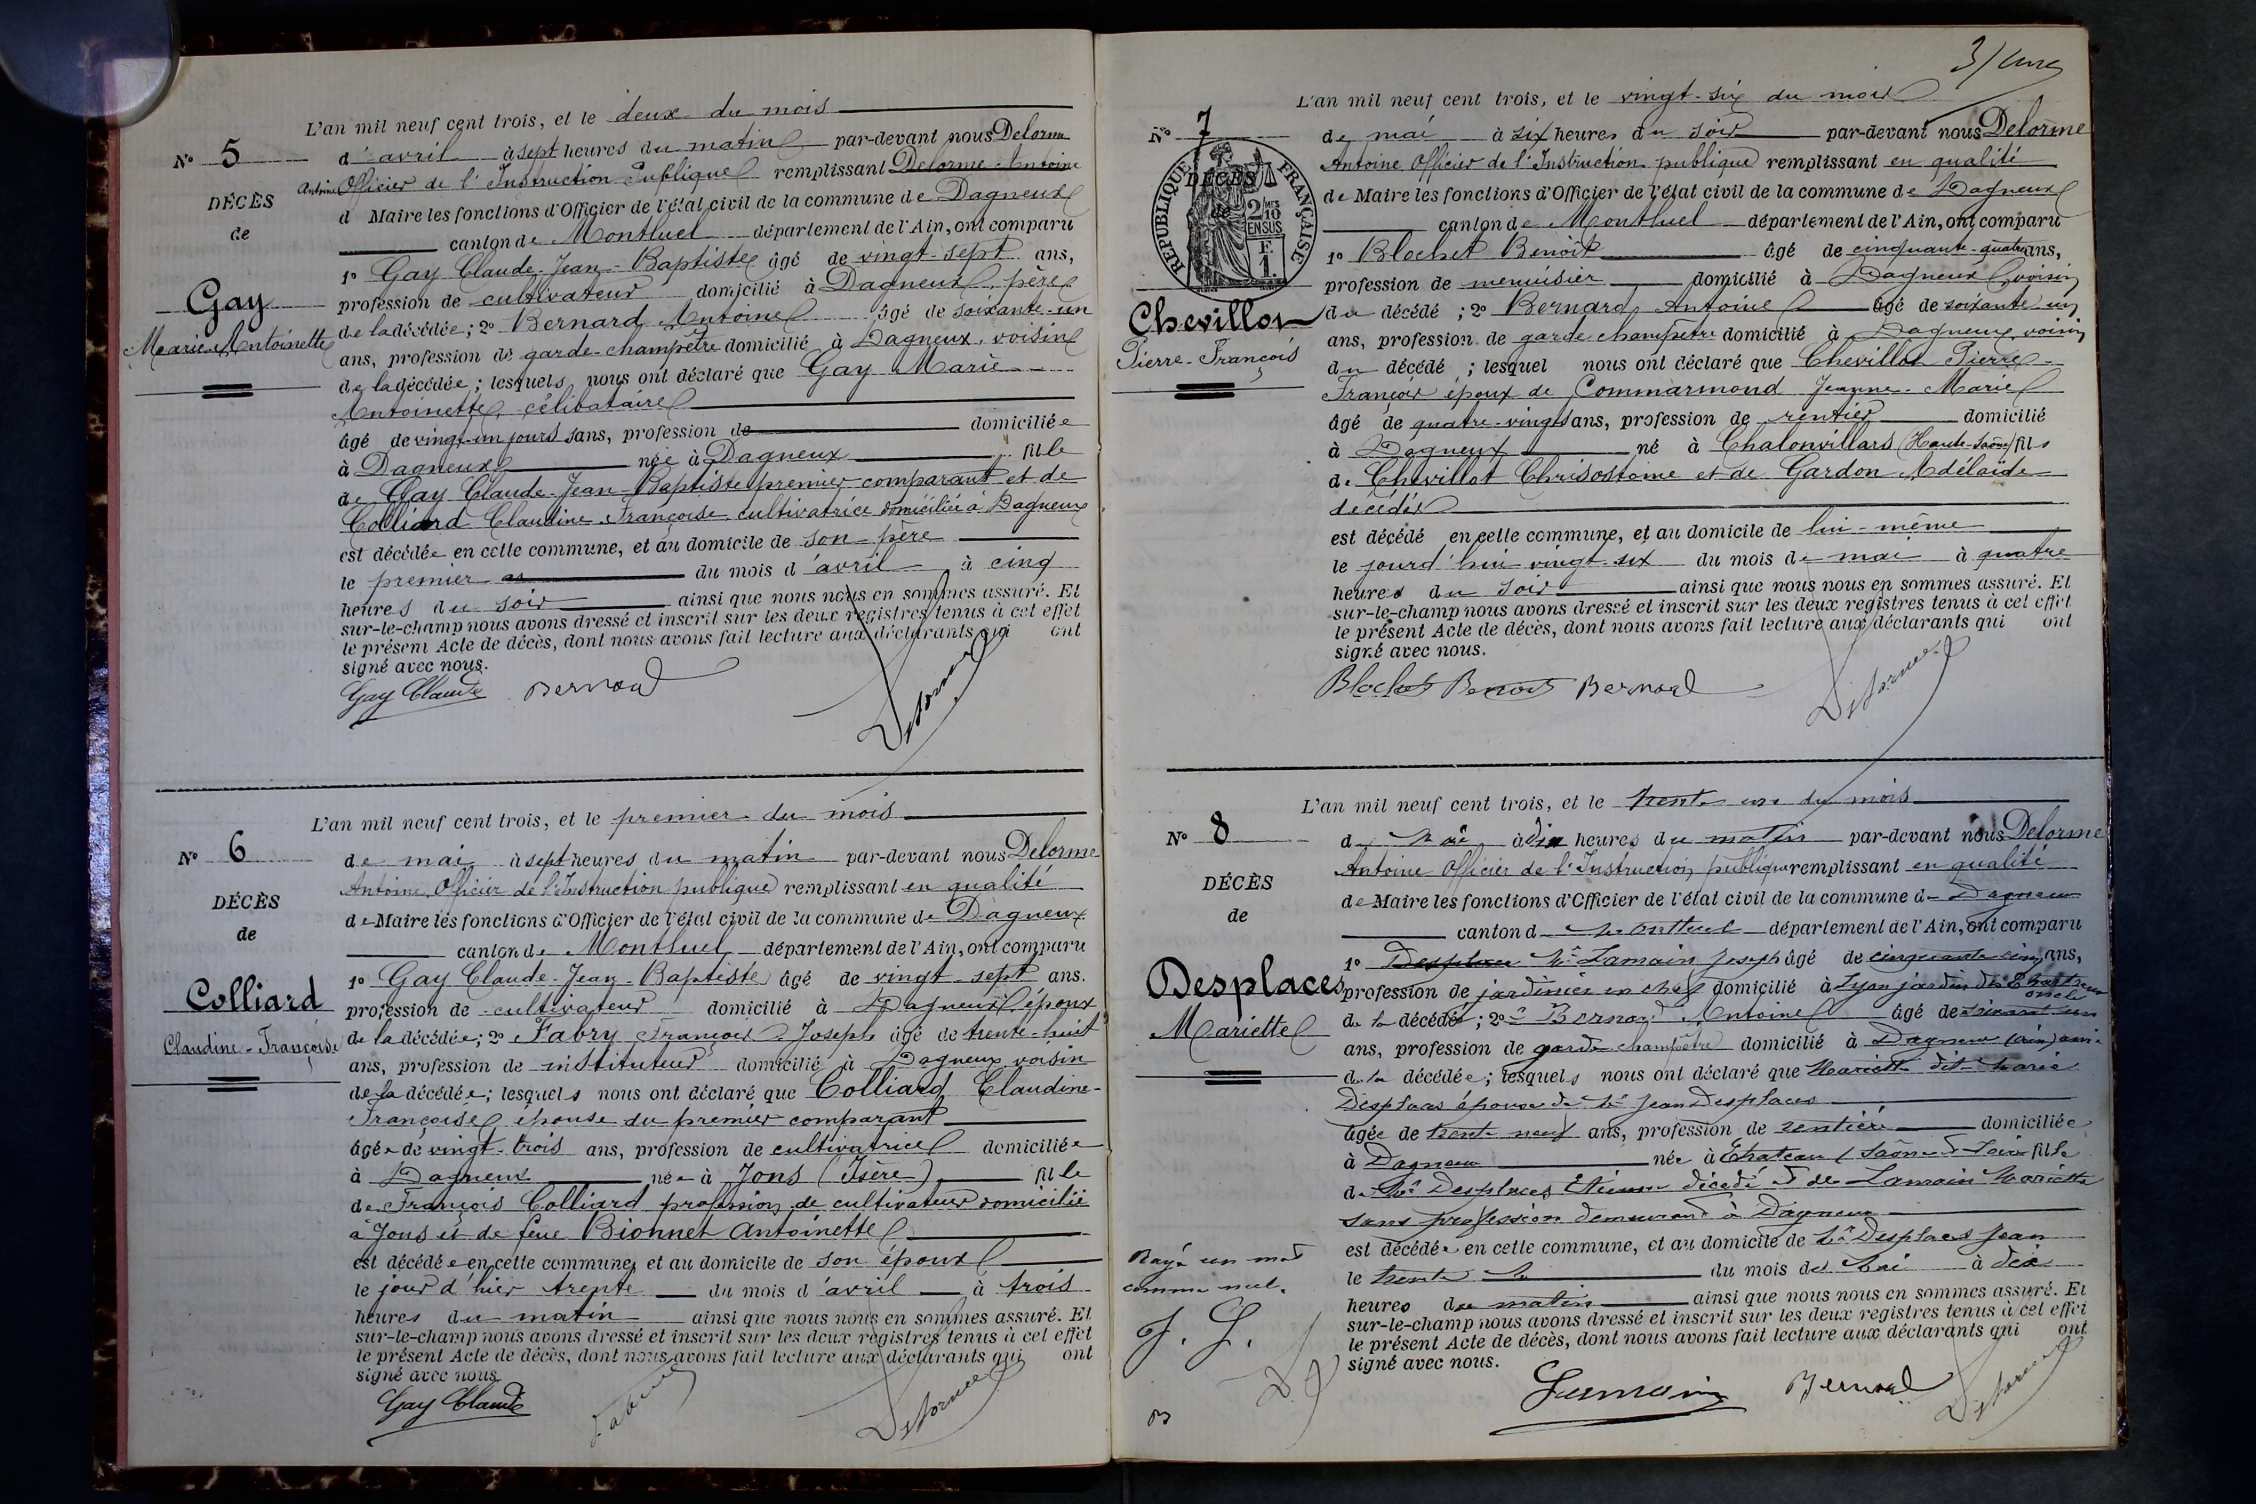 L'an mil neuf cent trois, et le deux du mois
N° 5
d'avril à sept heures du matin par-devant nous Delorme
Antoine Officier de l'Instruction Publique remplissant Delorme Antoine
DÉCÈS
d Maire les fonctions d'Officier de l'état civil de la commune de Dagneux
de
canton de Montluel département de l'Ain, ont comparu
1° Gay Claude-Jean-Baptiste âgé de vingt-sept ans,
Gay
profession de cultivateur domicilié à Dagneux, père
Marie-Antoinette
de la décédée; 2° Bernard Antoine âgé de soixante-un
ans, profession de garde-champêtre domicilié à Dagneux, voisin
de la décédée; lesquels nous ont déclaré que Gay Marie-
Antoinette, célibataire
âgé de vingt-un jours sans, profession de domiciliée
à Dagneux née à Dagneux fille
de Gay Claude-Jean-Baptiste premier comparant et de
Colliard Claudine-Françoise, cultivatrice domiciliée à Dagneux
est décédée en cette commune, et au domicile de son père
le premier du mois d'avril à cinq
heures du soir ainsi que nous nous en sommes assuré. Et
sur-le-champ nous avons dressé et inscrit sur les deux registres tenus à cet effet
le présent Acte de décès, dont nous avons fait lecture aux déclarants qui ont
signé avec nous.
Gay Claude Bernard Delorme
L'an mil neuf cent trois, et le premier du mois
N° 6
de mai à sept heures du matin par-devant nous Delorme
Antoine, Officier de l'Instruction publique remplissant en qualité
DÉCÈS
de Maire les fonctions d'Officier de l'état civil de la commune de Dagneux
de
canton de Montluel département de l'Ain, ont comparu
1° Gay Claude-Jean-Baptiste âgé de vingt-sept ans.
Colliard
profession de cultivateur domicilié à Dagneux, époux
Claudine-Françoise
de la décédée; 2° Fabry François-Joseph âgé de trente-huit
ans, profession de instituteur domicilié à Dagneux voisin
de la décédée; lesquels nous ont déclaré que Colliard Claudine-
Françoise, épouse du premier comparant
âgée de vingt-trois ans, profession de cultivatrice domiciliée
à Dagneux née à Jons (Isère) fille
de François Colliard profession de cultivateur domicilié
à Jons et de feue Bionnet Antoinette
est décédée en cette commune, et au domicile de son époux
le jour d'hier trente du mois d'avril à trois
heures du matin ainsi que nous nous en sommes assuré. Et
sur-le-champ nous avons dressé et inscrit sur les deux registres tenus à cet effet
le présent Acte de décès, dont nous avons fait lecture aux déclarants qui ont
signé avec nous
Gay Claude Fabry Delorme
L'an mil neuf cent trois, et le vingt-six du mois
N° 7
de mai à six heures du soir par-devant nous Delorme
Antoine Officier de l'Instruction publique remplissant en qualité
RÉPUBLIQUE FRANÇAISE
DÉCÈS
de
2/10 EN SUS
de Maire les fonctions d'Officier de l'état civil de la commune de Dagneux
canton de Montluel département de l'Ain, ont comparu
1° Blochet Benoît âgé de cinquante-quatre ans,
profession de menuisier domicilié à Dagneux, voisin
Chevillot
du décédé; 2° Bernard Antoine âgé de soixante un
Pierre-François
ans, profession de garde champêtre domicilié à Dagneux, voisin
du décédé; lesquel nous ont déclaré que Chevillot Pierre-
François époux de Commarmond Jeanne-Marie
âgé de quatre-vingts ans, profession de rentier domicilié
à Dagneux né à Chalonvillars (Haute-Saône) fils
de Chevillot Chrisostome et de Gardon Adélaïde
décédés
est décédé en cette commune, et au domicile de lui-même
le jourd'hui vingt-six du mois de mai à quatre
heures du soir ainsi que nous nous en sommes assuré. Et
sur-le-champ nous avons dressé et inscrit sur les deux registres tenus à cet effet
le présent Acte de décès, dont nous avons fait lecture aux déclarants qui ont
signé avec nous.
Blochet Benoit Bernard Delorme
L'an mil neuf cent trois, et le trente un du mois
N° 8
de Mai à dix heures du matin par-devant nous Delorme
Antoine Officier de l'Instruction publique remplissant en qualité
DÉCÈS
de Maire les fonctions d'Officier de l'état civil de la commune de Dagneux
de
canton d Montluel département de l'Ain, ont comparu
1° Desplaces Mr Lamain Joseph âgé de cinquante cinq ans,
Desplaces
profession de jardinier en chef domicilié à Lyon jardin des Chartreux
oncle
Mariette
de la décédé; 2° Bernard Antoine âgé de soixante un
ans, profession de garde champêtre domicilié à Dagneux (Ain) ami
de la décédée; lesquels nous ont déclaré que Mariette dit Marie
Desplaces épouse de Mr Jean Desplaces
âgée de trente neuf ans, profession de rentière domiciliée
à Dagneux née à Chateau (Saône et Loire fille
de Mr Desplaces Etienne décédé et de Lamain Mariette
sans profession demeurant à Dagneux
est décédée en cette commune, et au domicile de Mr Desplaces Jean
le trente du mois de Mai à dix
heures du matin ainsi que nous nous en sommes assuré. Et
sur-le-champ nous avons dressé et inscrit sur les deux registres tenus à cet effet
le présent Acte de décès, dont nous avons fait lecture aux déclarants qui ont
signé avec nous.
Rayé un mot
comme nul.
J. L.
B
Lamain Bernard Delorme